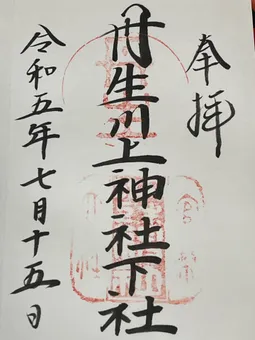 奉拝
丹生川上神社下社
令和五年七月十五日